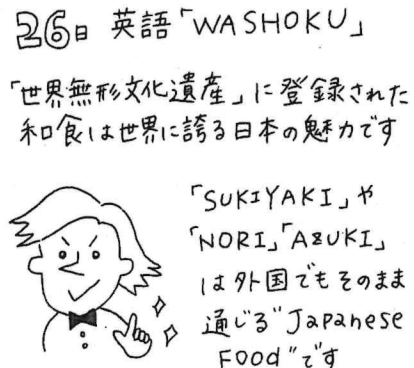 26日 英語「WASHOKU」
「世界無形文化遺産」に登録された
和食は世界に誇る日本の魅力です
「SUKIYAKI」や
「NORI」「AZUKI」
は外国でもそのまま
通じる"Japanese
Food"です